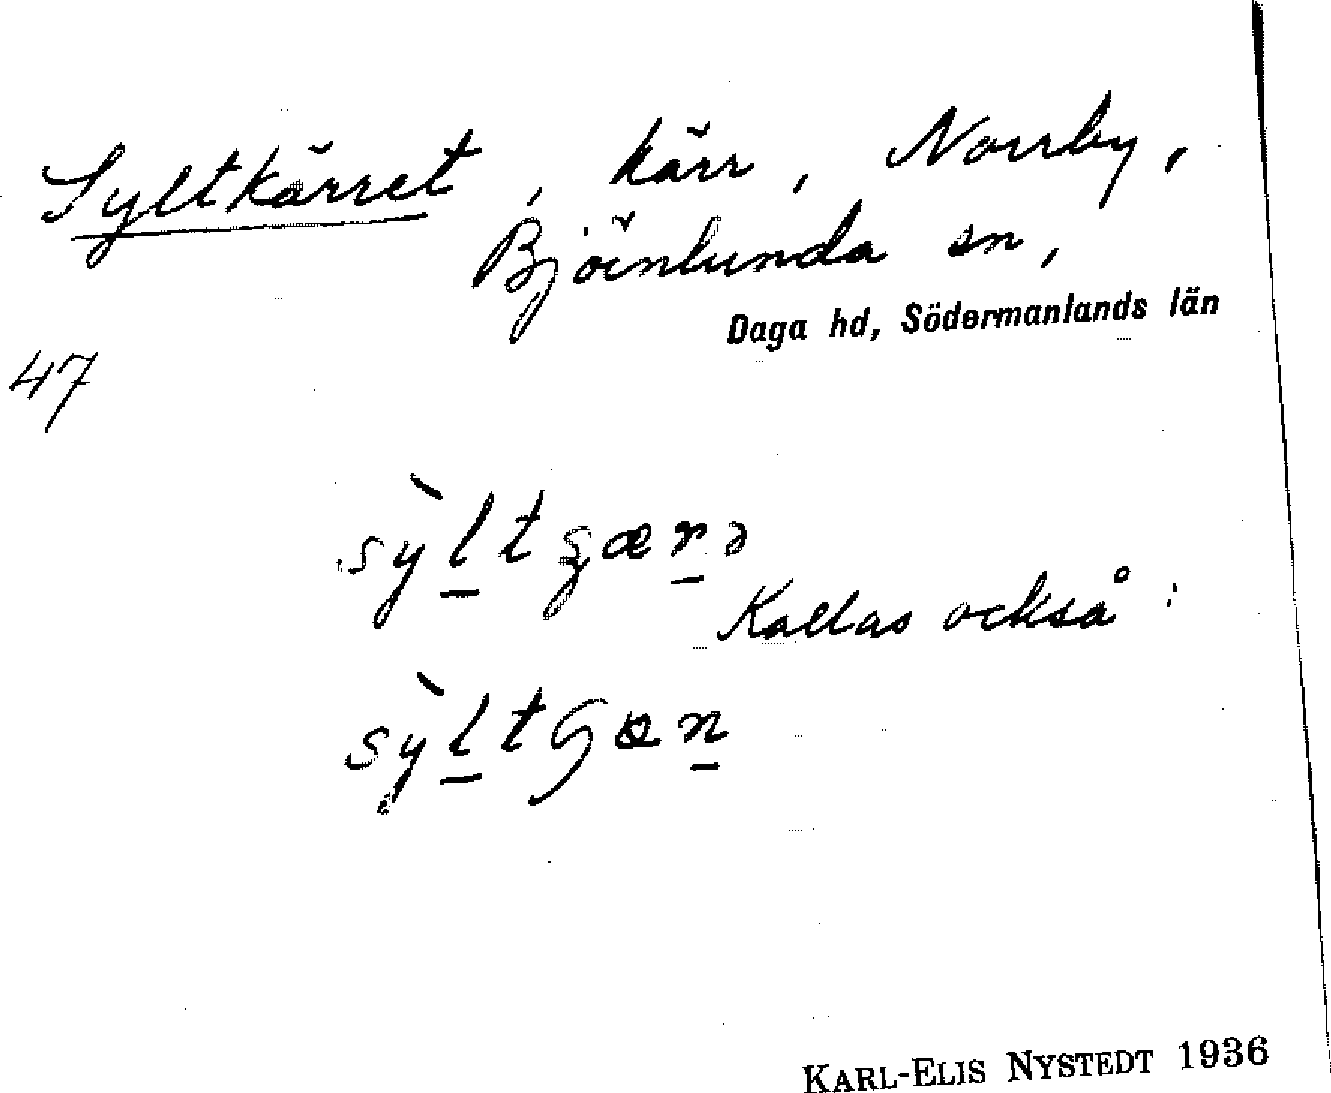 Syltkärret, kärr, Norrby,
Björnlunda sn,
Daga hd, Södermanlands län
47
sỳltgærə
Kallas också:
sỳltGən
KARL-ELIS NYSTEDT 1936